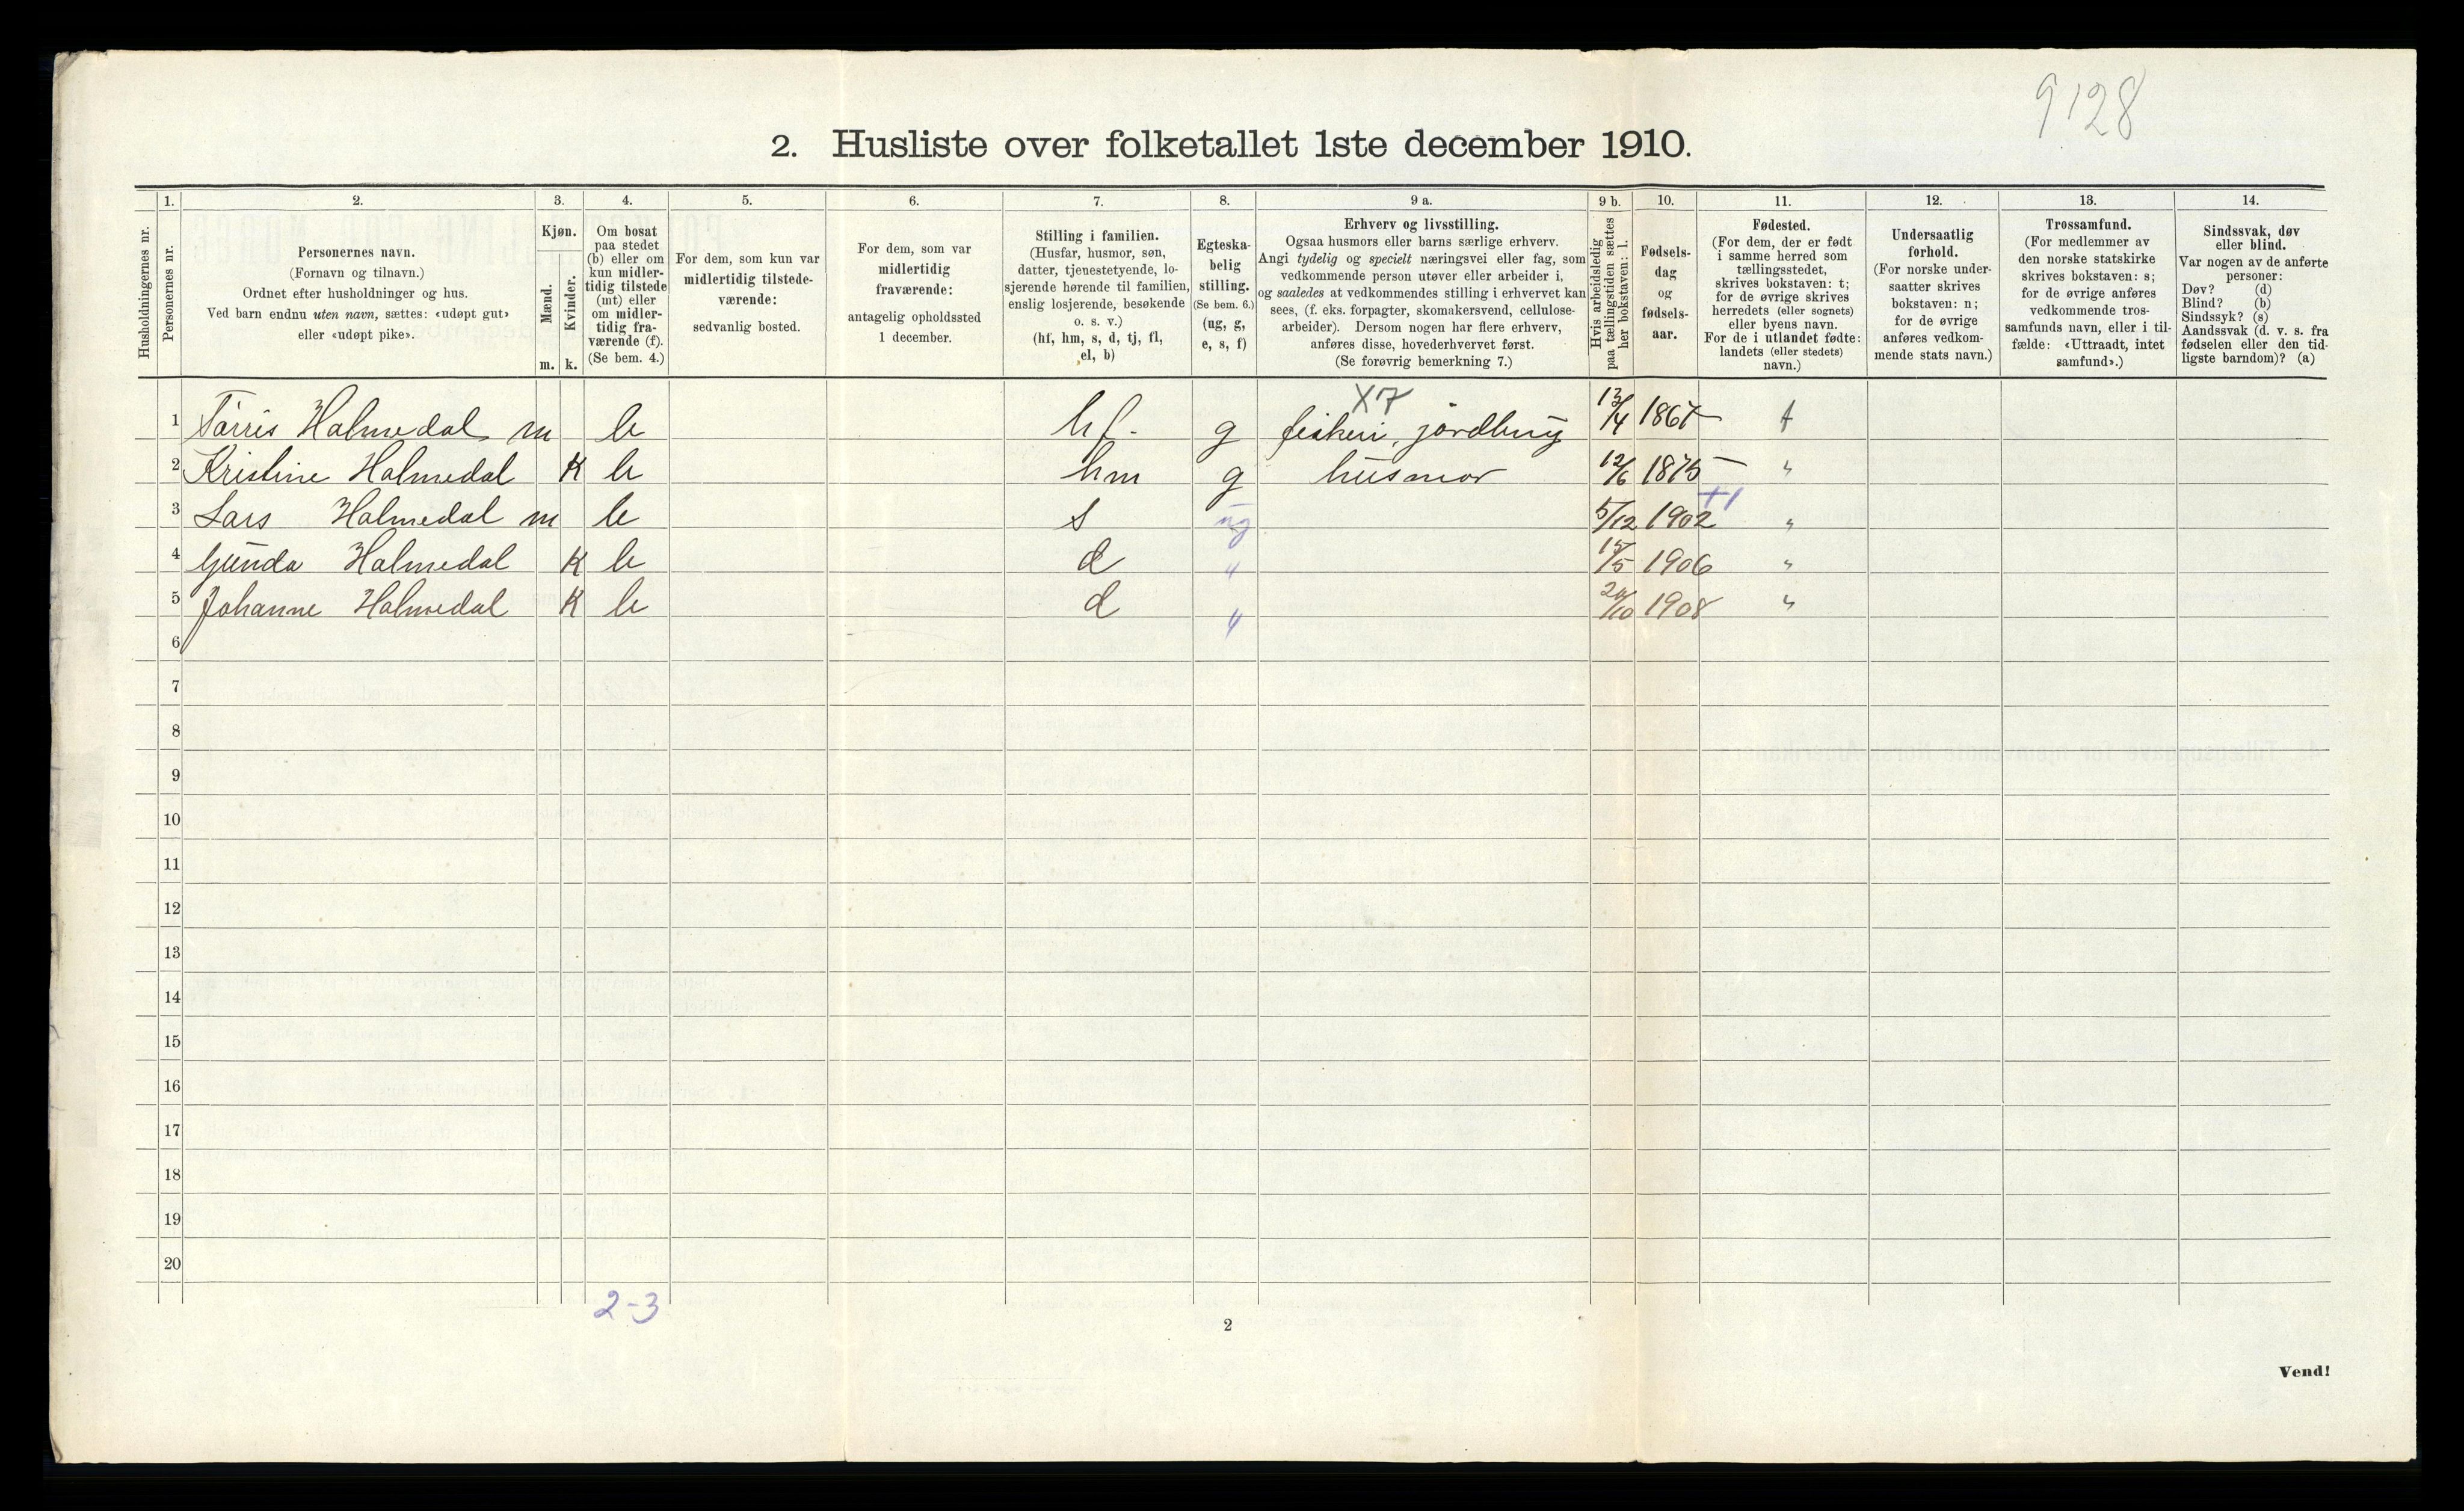 9128
2. Husliste over folketallet 1ste december 1910.
Husholdningernes nr.
1.
Personernes nr.
2.
Personernes navn.
(Fornavn og tilnavn.)
Ordnet efter husholdninger og hus.
Ved barn endnu uten navn, sættes: «udøpt gut»
eller «udøpt pike».
3.
Kjøn.
Mænd.
m.
Kvinder.
k.
4.
Om bosat
paa stedet
(b) eller om
kun midler-
tidig tilstede
(mt) eller
om midler-
tidig fra-
værende (f).
(Se bem. 4.)
5.
For dem, som kun var
midlertidig tilstede-
værende:
sedvanlig bosted.
6.
For dem, som var
midlertidig
fraværende:
antagelig opholdssted
1 december.
7.
Stilling i familien.
(Husfar, husmor, søn,
datter, tjenestetyende, lo-
sjerende hørende til familien,
enslig losjerende, besøkende
o. s. v.)
(hf, hm, s, d, tj, fl,
el, b)
8.
Egteska-
belig
stilling.
(Se bem. 6.)
(ug, g,
e, s, f)
9 a.
Erhverv og livsstilling.
Ogsaa husmors eller barns særlige erhverv.
Angi tydelig og specielt næringsvei eller fag, som
vedkommende person utøver eller arbeider i,
og saaledes at vedkommendes stilling i erhvervet kan
sees, (f. eks. forpagter, skomakersvend, cellulose-
arbeider). Dersom nogen har flere erhverv,
anføres disse, hovederhvervet først.
(Se forøvrig bemerkning 7.)
9 b.
Hvis arbeidsledig
paa tællingstiden sættes
her bokstaven: l.
10.
Fødsels-
dag
og
fødsels-
aar.
11.
Fødested.
(For dem, der er født
i samme herred som
tællingsstedet,
skrives bokstaven: t;
for de øvrige skrives
herredets (eller sognets)
eller byens navn.
For de i utlandet fødte:
landets (eller stedets)
navn.)
12.
Undersaatlig
forhold.
(For norske under-
saatter skrives
bokstaven: n;
for de øvrige
anføres vedkom-
mende stats navn.)
13.
Trossamfund.
(For medlemmer av
den norske statskirke
skrives bokstaven: s;
for de øvrige anføres
vedkommende tros-
samfunds navn, eller i til-
fælde: «Uttraadt, intet
samfund».)
14.
Sindssvak, døv
eller blind.
Var nogen av de anførte
personer:
Døv? (d)
Blind? (b)
Sindssyk? (s)
Aandssvak (d. v. s. fra
fødselen eller den tid-
ligste barndom)? (a)
X7
1 Tørris Halmedal m b hf. g fiskeri, jordbrug 13/4 1867 t
2 Kristine Halmedal K b hm g husmor 12/6 1875 "
+1
3 Lars Halmedal m b s ug 5/12 1902 "
4 Gunda Halmedal K b d " 15/5 1906 "
5 Johanne Halmedal K b d " 20/10 1908 "
6
7
8
9
10
11
12
13
14
15
16
17
18
19
20
2-3
2
Vend!